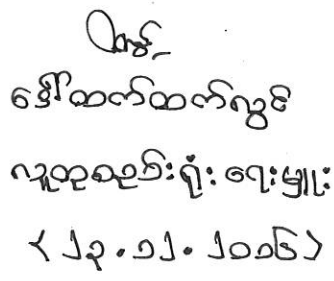 ဒေါ်ထက်ထက်လွင်
လူထုစည်းရုံးရေးမှူး
(၂၃.၁၂.၂၀၁၆)